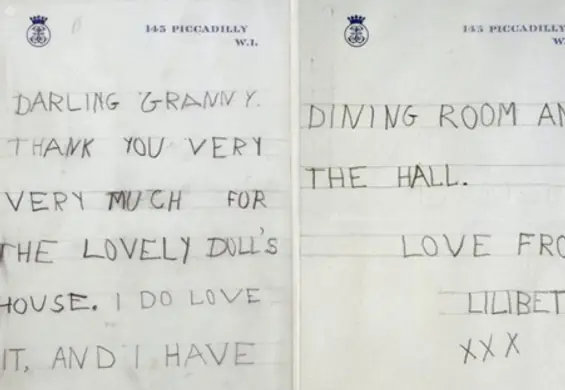 145 PICCADILLY
W.1.
DARLING GRANNY.
THANK YOU VERY
VERY MUCH FOR
THE LOVELY DOLL'S
HOUSE. I DO LOVE
IT, AND I HAVE
145 PICCADILLY
W.
DINING ROOM AN
THE HALL.
LOVE FRO
LILIBET
XXX